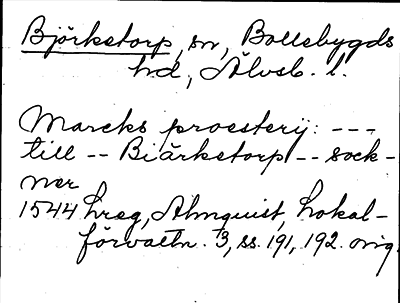 Björketorp, sn, Bollebygds
hd, Älvsb. l.
Marcks proesterij: ---
till -- Biärketorp -- sock-
ner
1544 hreg, Almquist, Lokal-
förvaltn. 3, ss. 191, 192. orig.